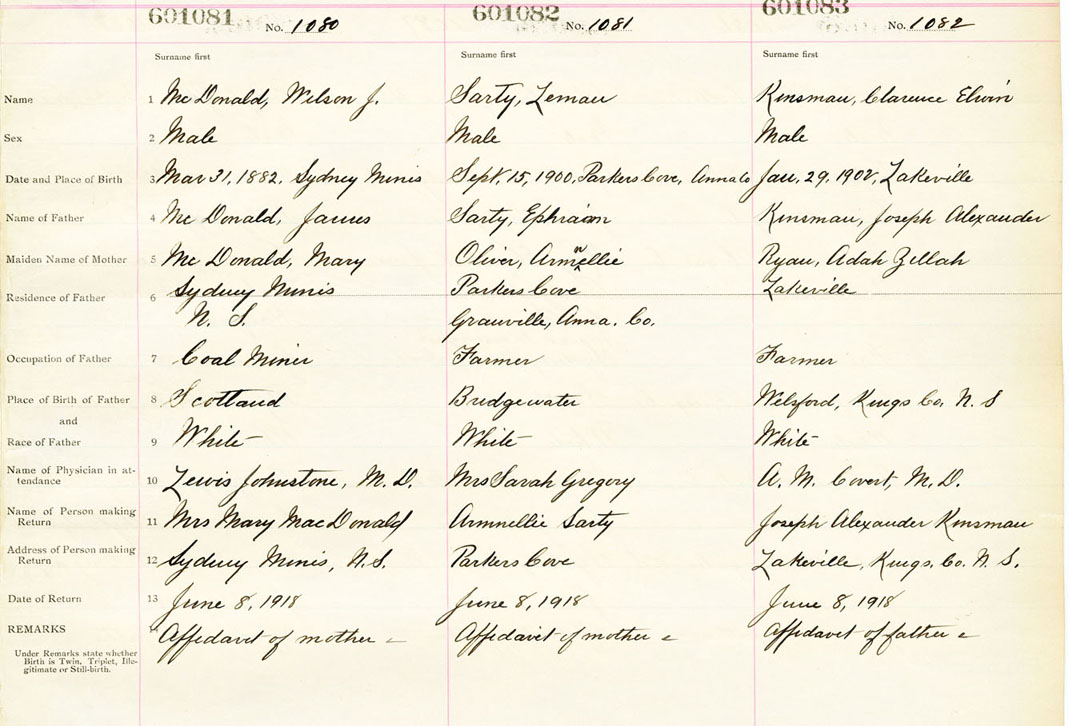 601081 No. 1080 601082 No. 1081 601083 No. 1082
Surname first Surname first Surname first
Name 1 McDonald, Wilson J. Sarty, Leman Kinsman, Clarence Elwin
Sex 2 Male Male Male
Date and Place of Birth 3 Mar 31, 1882, Sydney Mines Sept. 15, 1900, Parkers Cove, Anna Co Jan. 29, 1902, Lakeville
Name of Father 4 Mc Donald, James Sarty, Ephraim Kinsman, Joseph Alexander
Maiden Name of Mother 5 Mc Donald, Mary Oliver, Armnellie Ryan, Adah Zillah
Residence of Father 6 Sydney Mines Parkers Cove Lakeville
N. S. Granville, Anna. Co.
Occupation of Father 7 Coal Miner Farmer Farmer
Place of Birth of Father 8 Scotland Bridgewater Welsford, Kings Co. N. S
and
Race of Father 9 White White White
Name of Physician in at-
tendance 10 Lewis Johnstone, M. D. Mrs Sarah Gregory A. M. Covert, M. D.
Name of Person making
Return 11 Mrs Mary MacDonald Armnellie Sarty Joseph Alexander Kinsman
Address of Person making
Return 12 Sydney Mines, N. S. Parkers Cove Lakeville, Kings. Co. N. S.
Date of Return 13 June 8, 1918 June 8, 1918 June 8, 1918
REMARKS 14 Affidavit of mother Affidavit of mother Affidavit of father
Under Remarks state whether
Birth is Twin, Triplet, Ille-
gitimate or Still-birth.